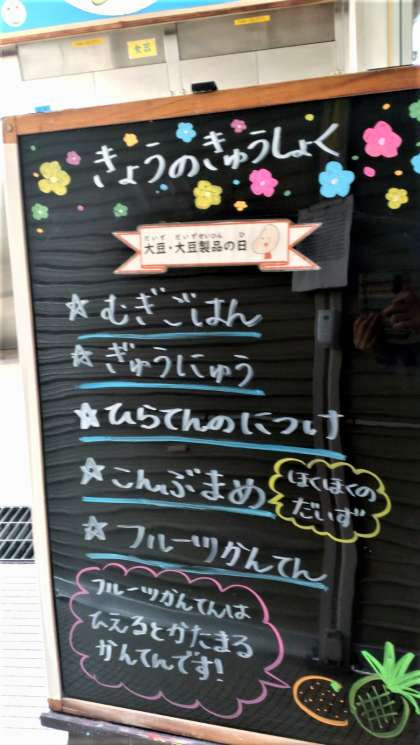 きょうのきゅうしょく
だいず だいずせいひん ひ
大豆・大豆製品の日
☆むぎごはん
☆ぎゅうにゅう
☆ひらてんのにつけ
☆こんぶまめ
ほくほくの
だいず
☆フルーツかんてん
フルーツかんてんは
ひえるとかたまる
かんてんです!